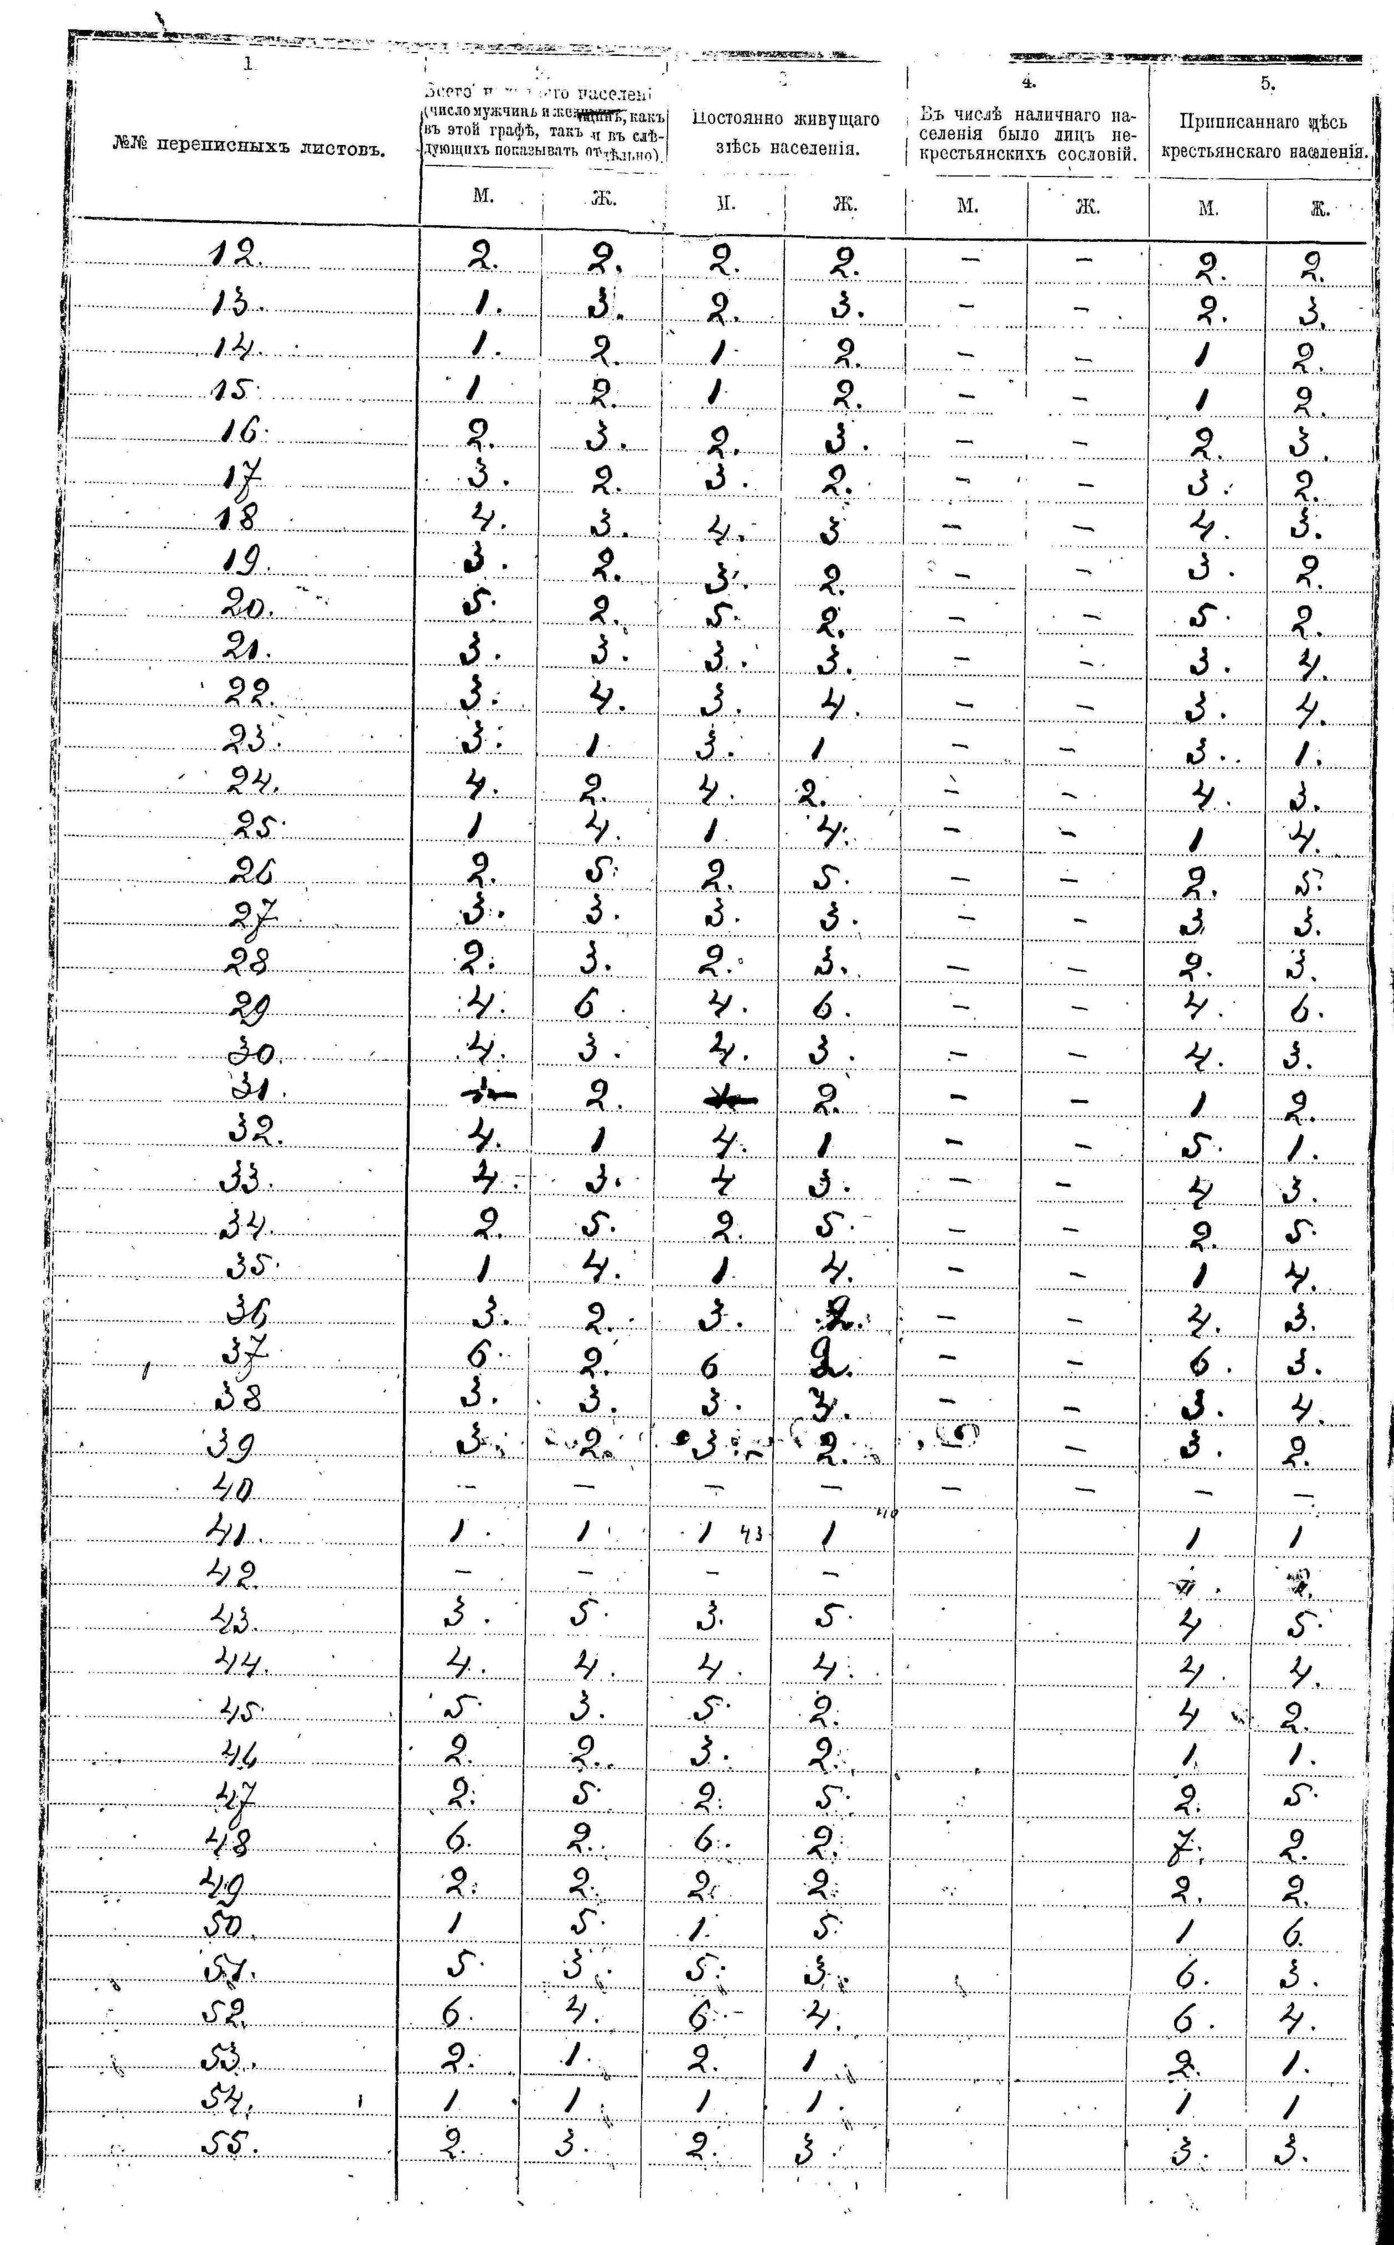 1. 4. 5.
№№ переписныхъ листовъ.
Всего населені
(число мужчинъ и женщинъ, какъ
въ этой графѣ, такъ и въ слѣ-
дующихъ показывать отдѣльно).
Постоянно живущаго
здѣсь населенія.
Въ числѣ наличнаго на-
селенія было лицъ не-
крестьянскихъ сословій.
Приписаннаго здѣсь
крестьянскаго населенія.
М. Ж. М. Ж. М. Ж. М. Ж.
12. 2. 2. 2. 2. – – 2. 2.
13. 1. 3. 2. 3. – – 2. 3.
14. 1. 2. 1 2. – – 1 2.
15. 1 2. 1 2. – – 1 2.
16. 2. 3. 2. 3. – – 2. 3.
17 3. 2. 3. 2. – – 3. 2.
18 4. 3. 4. 3 – – 4. 3.
19. 3. 2. 3. 2. – – 3. 2.
20. 5. 2. 5. 2. – – 5. 2.
21. 3. 3. 3. 3. – – 3. 4.
22. 3. 4. 3. 4. – – 3. 4.
23. 3. 1 3. 1 – – 3. 1.
24. 4. 2. 4. 2. – – 4. 3.
25. 1 4. 1 4. – – 1 4.
26 2. 5. 2. 5. – – 2. 5.
27 3. 3. 3. 3. – – 3 3.
28 2. 3. 2. 3. – – 2. 3.
29 4. 6 4. 6. – – 4. 6.
30. 4. 3. 4. 3. – – 4. 3.
31. 2. 2. – – 1 2.
32. 4. 1 4. 1 – – 5. 1.
33. 4. 3. 4 3. – – 4 3.
34. 2. 5. 2. 5. – – 2. 5.
35. 1 4. 1 4. – – 1 4.
36 3. 2. 3. 2. – – 4. 3.
37 6. 2. 6 2. – – 6. 3.
38 3. 3. 3. 3. – – 3. 4.
39 3. 2. 3. 2. – 3. 2.
40 – – – – – – – –
41. 1. 1 1 43 1 40 1 1
42. – – – –
43. 3. 5. 3. 5. 4 5.
44. 4. 4. 4. 4. 4. 4.
45 5. 3. 5. 2. 4 2.
46 2. 2. 3. 2. 1. 1.
47 2. 5. 2. 5. 2. 5.
48 6. 2. 6. 2. 7. 2.
49 2. 2. 2. 2 2. 2.
50. 1 5. 1. 5. 1 6.
51. 5. 3. 5. 3. 6. 3.
52. 6. 4. 6. 4. 6. 4.
53. 2. 1. 2. 1. 2. 1.
54. 1 1 1 1. 1 1
55. 2. 3. 2. 3. 3. 3.